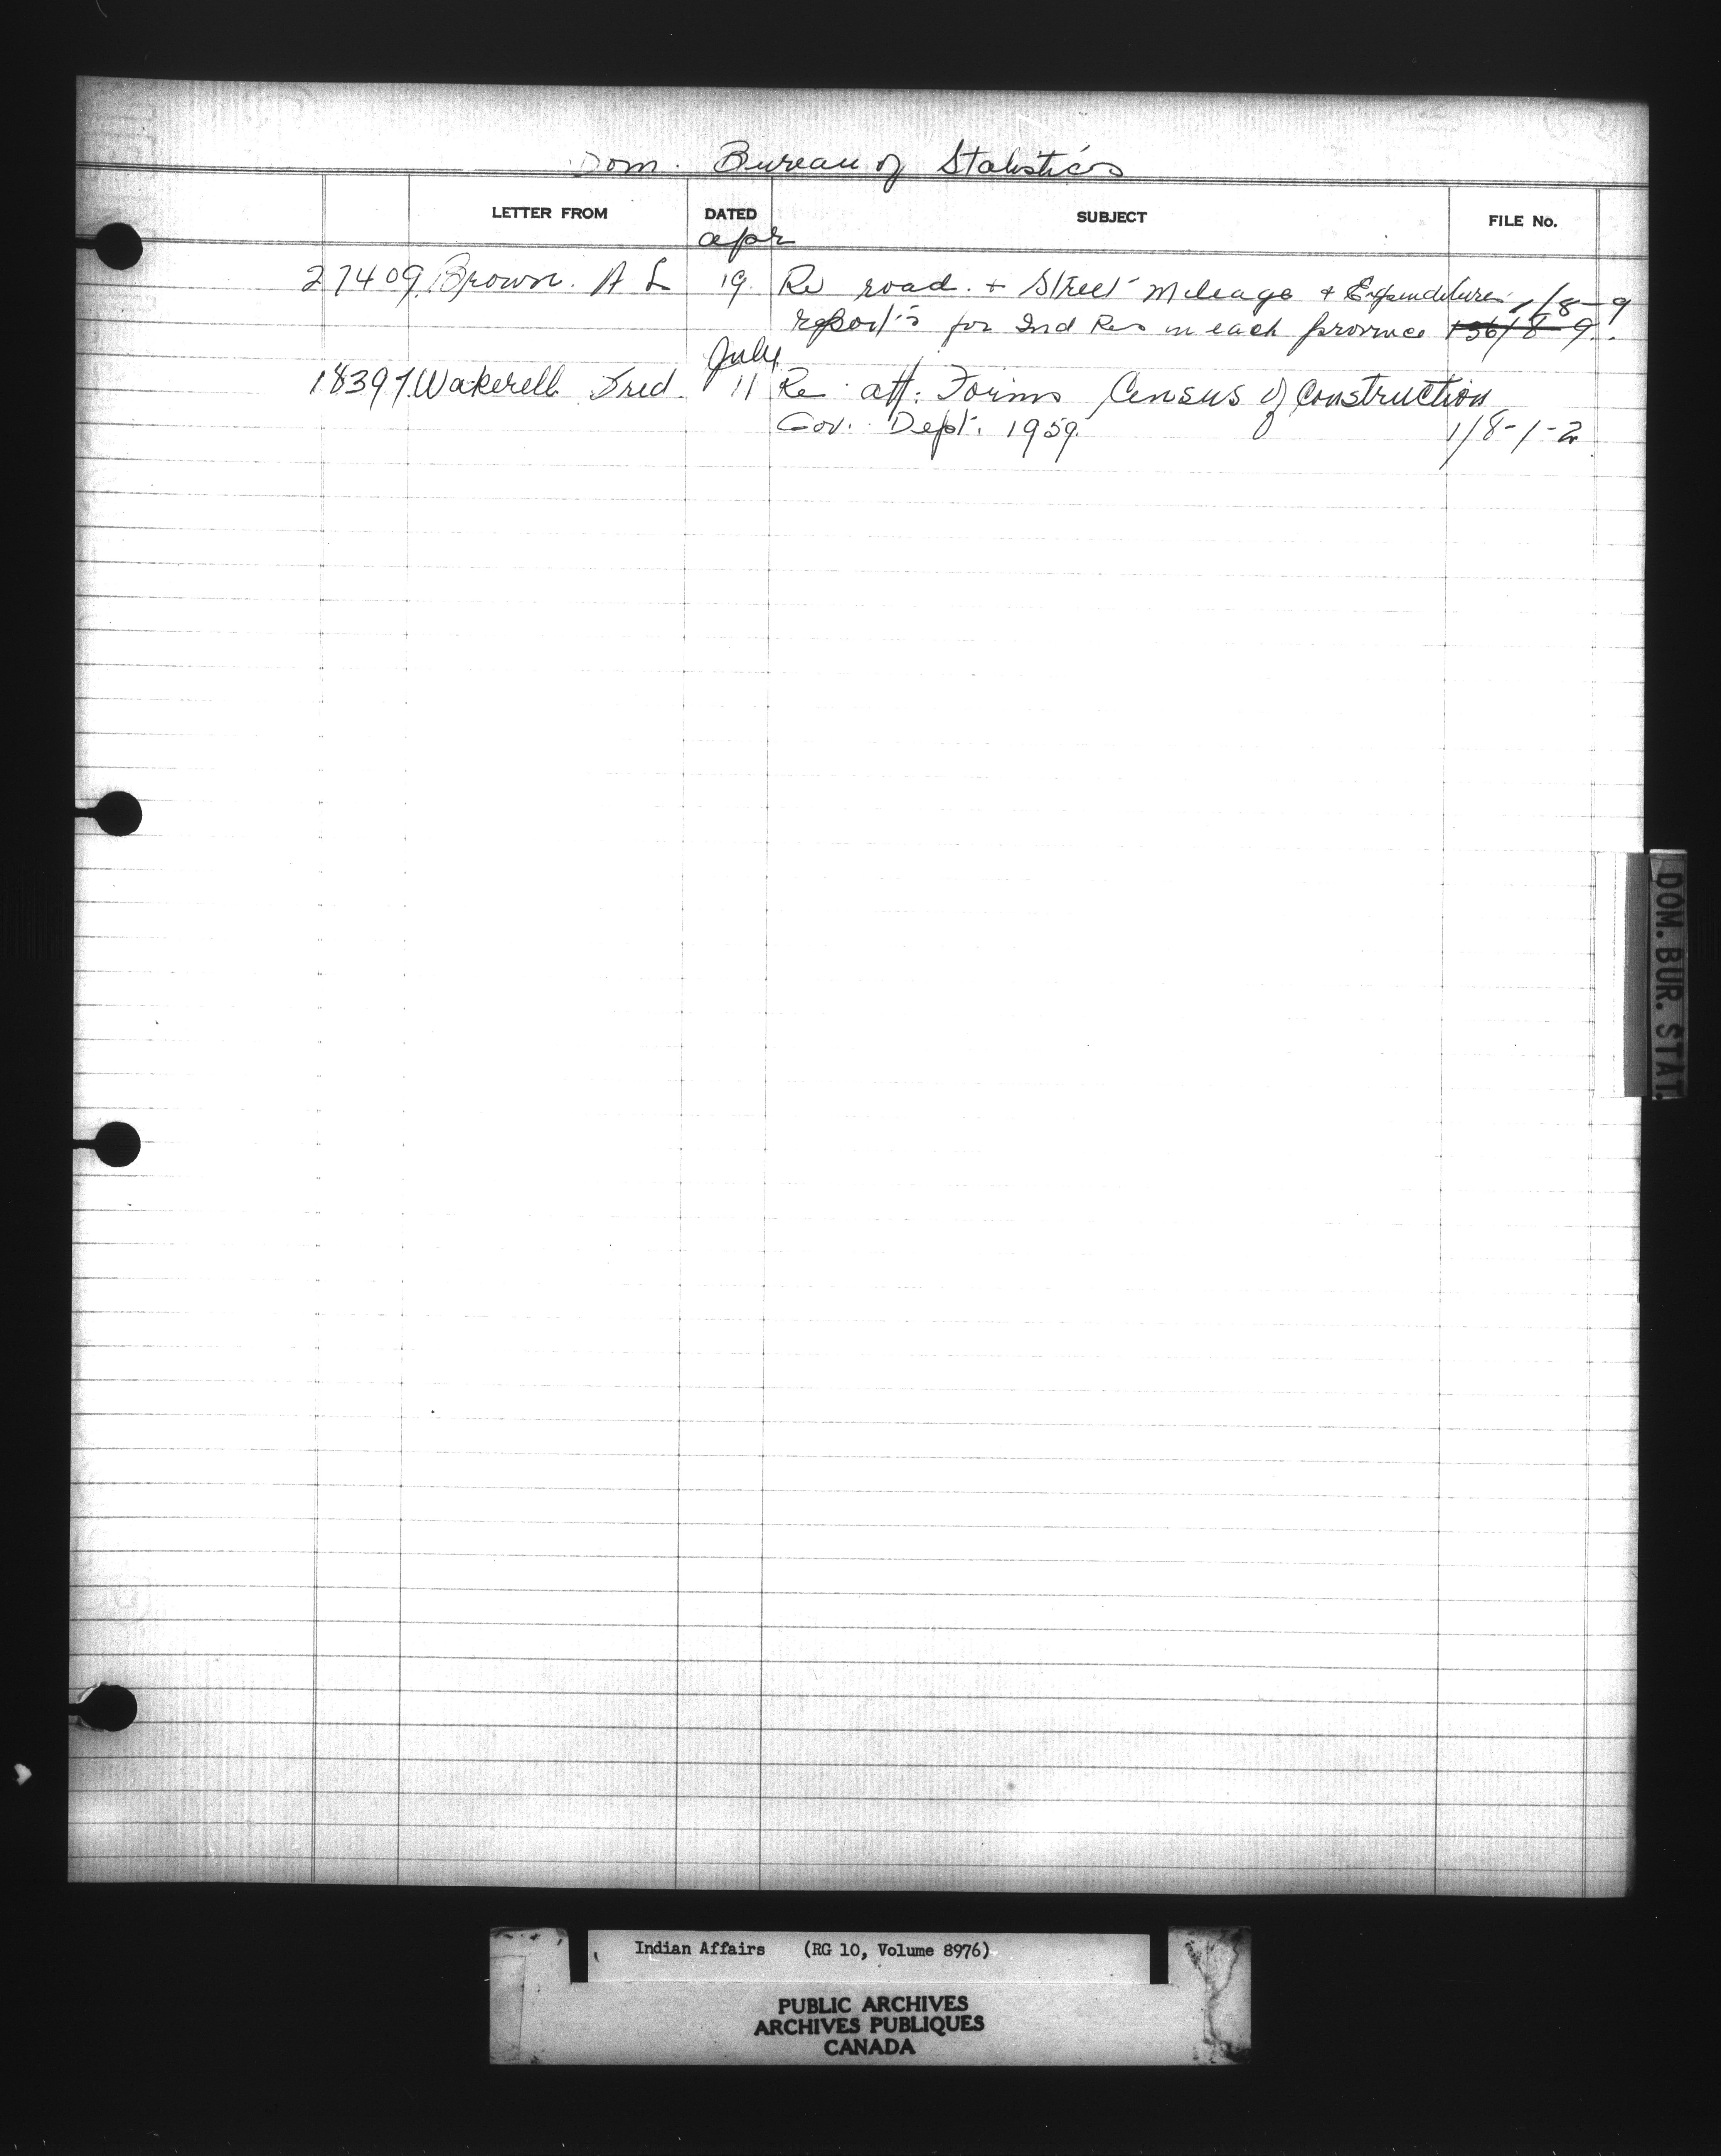 Dom. Bureau of Statistics
LETTER FROM DATED SUBJECT FILE No.
apr
27409 Brown. A L 19. Re road. + Street Mileage + Expenditures 1/8-9
reports for Ind Res in each province 156/8-9.
July
18397 Wakerell Fred. 11 Re att. Forms Census of Construction
Gov. Dept. 1959. 1/8-1-2
DOM. BUR. STAT.
Indian Affairs (RG 10, Volume 8976)
PUBLIC ARCHIVES
ARCHIVES PUBLIQUES
CANADA